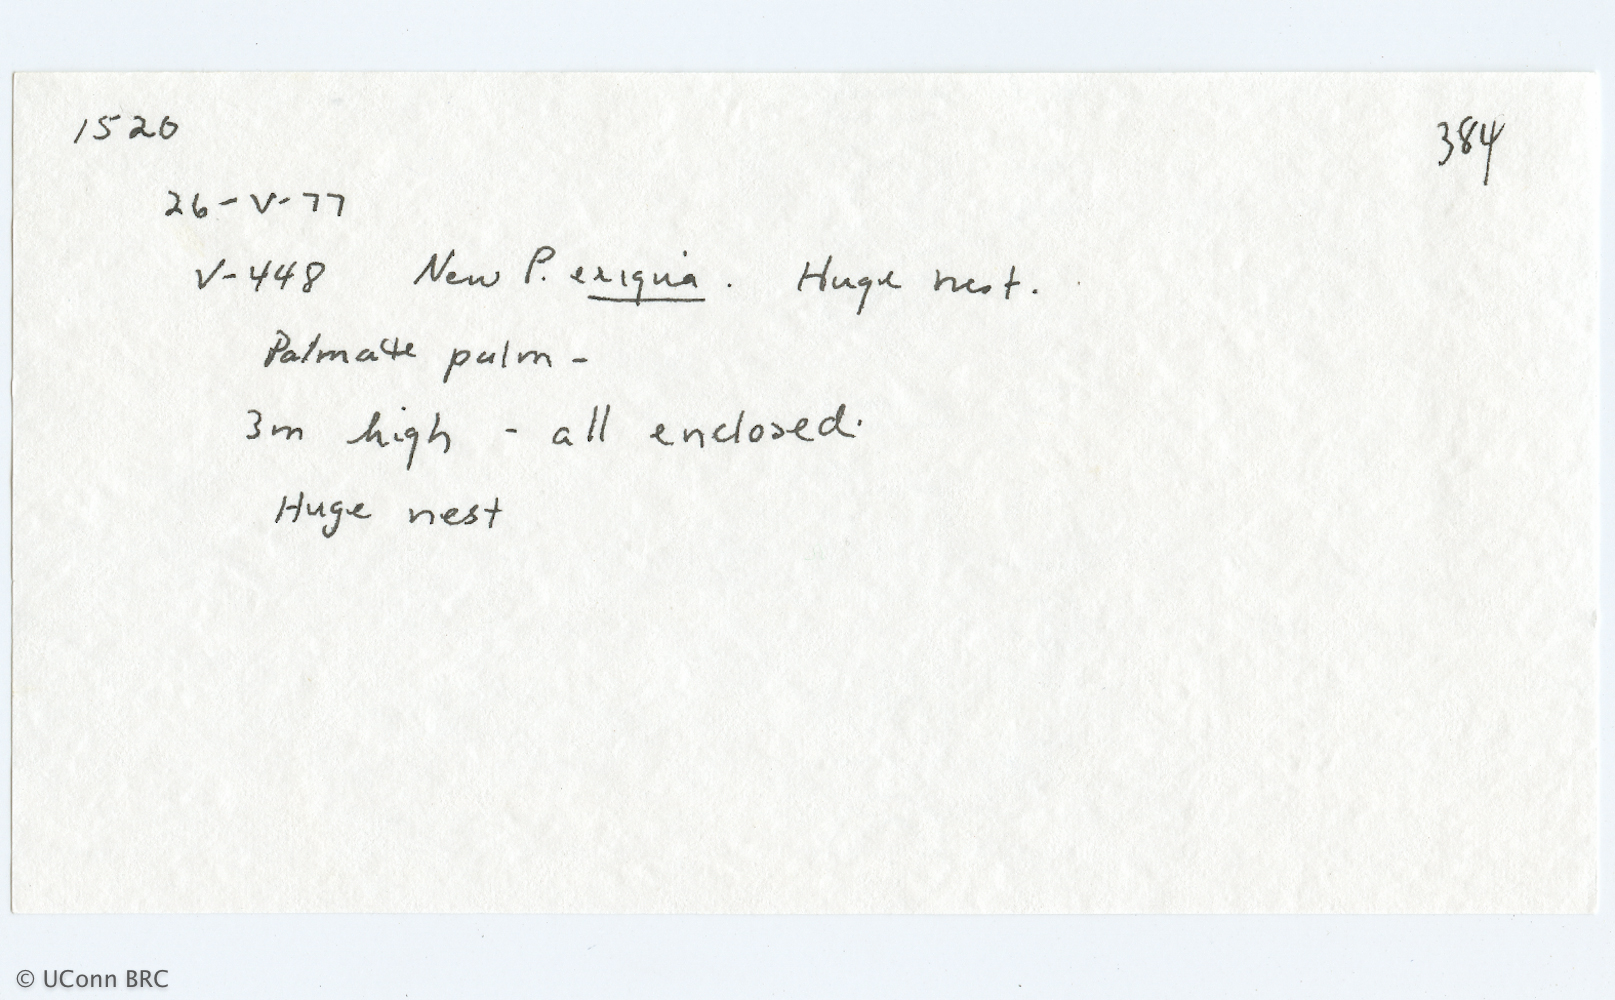 1520 384
26-V-77
V-448 New P. exigua. Huge nest.
Palmate palm -
3m high - all enclosed.
Huge nest
© UConn BRC